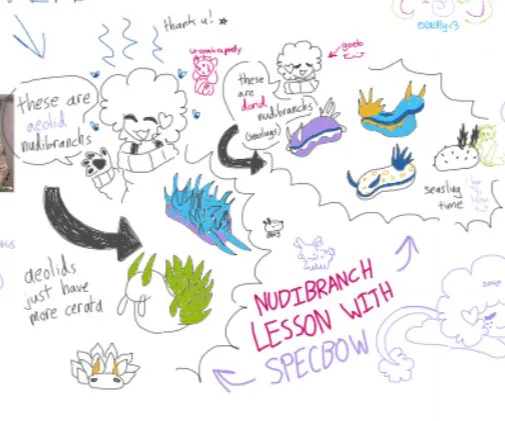 thank u!
these are
aeolid
nudibranchs
these
are
dorid
nudibranchs
(seaslugs)
goob
aeolids
just have
more cerata
seaslug
time
NUDIBRANCH
LESSON WITH
SPECBOW